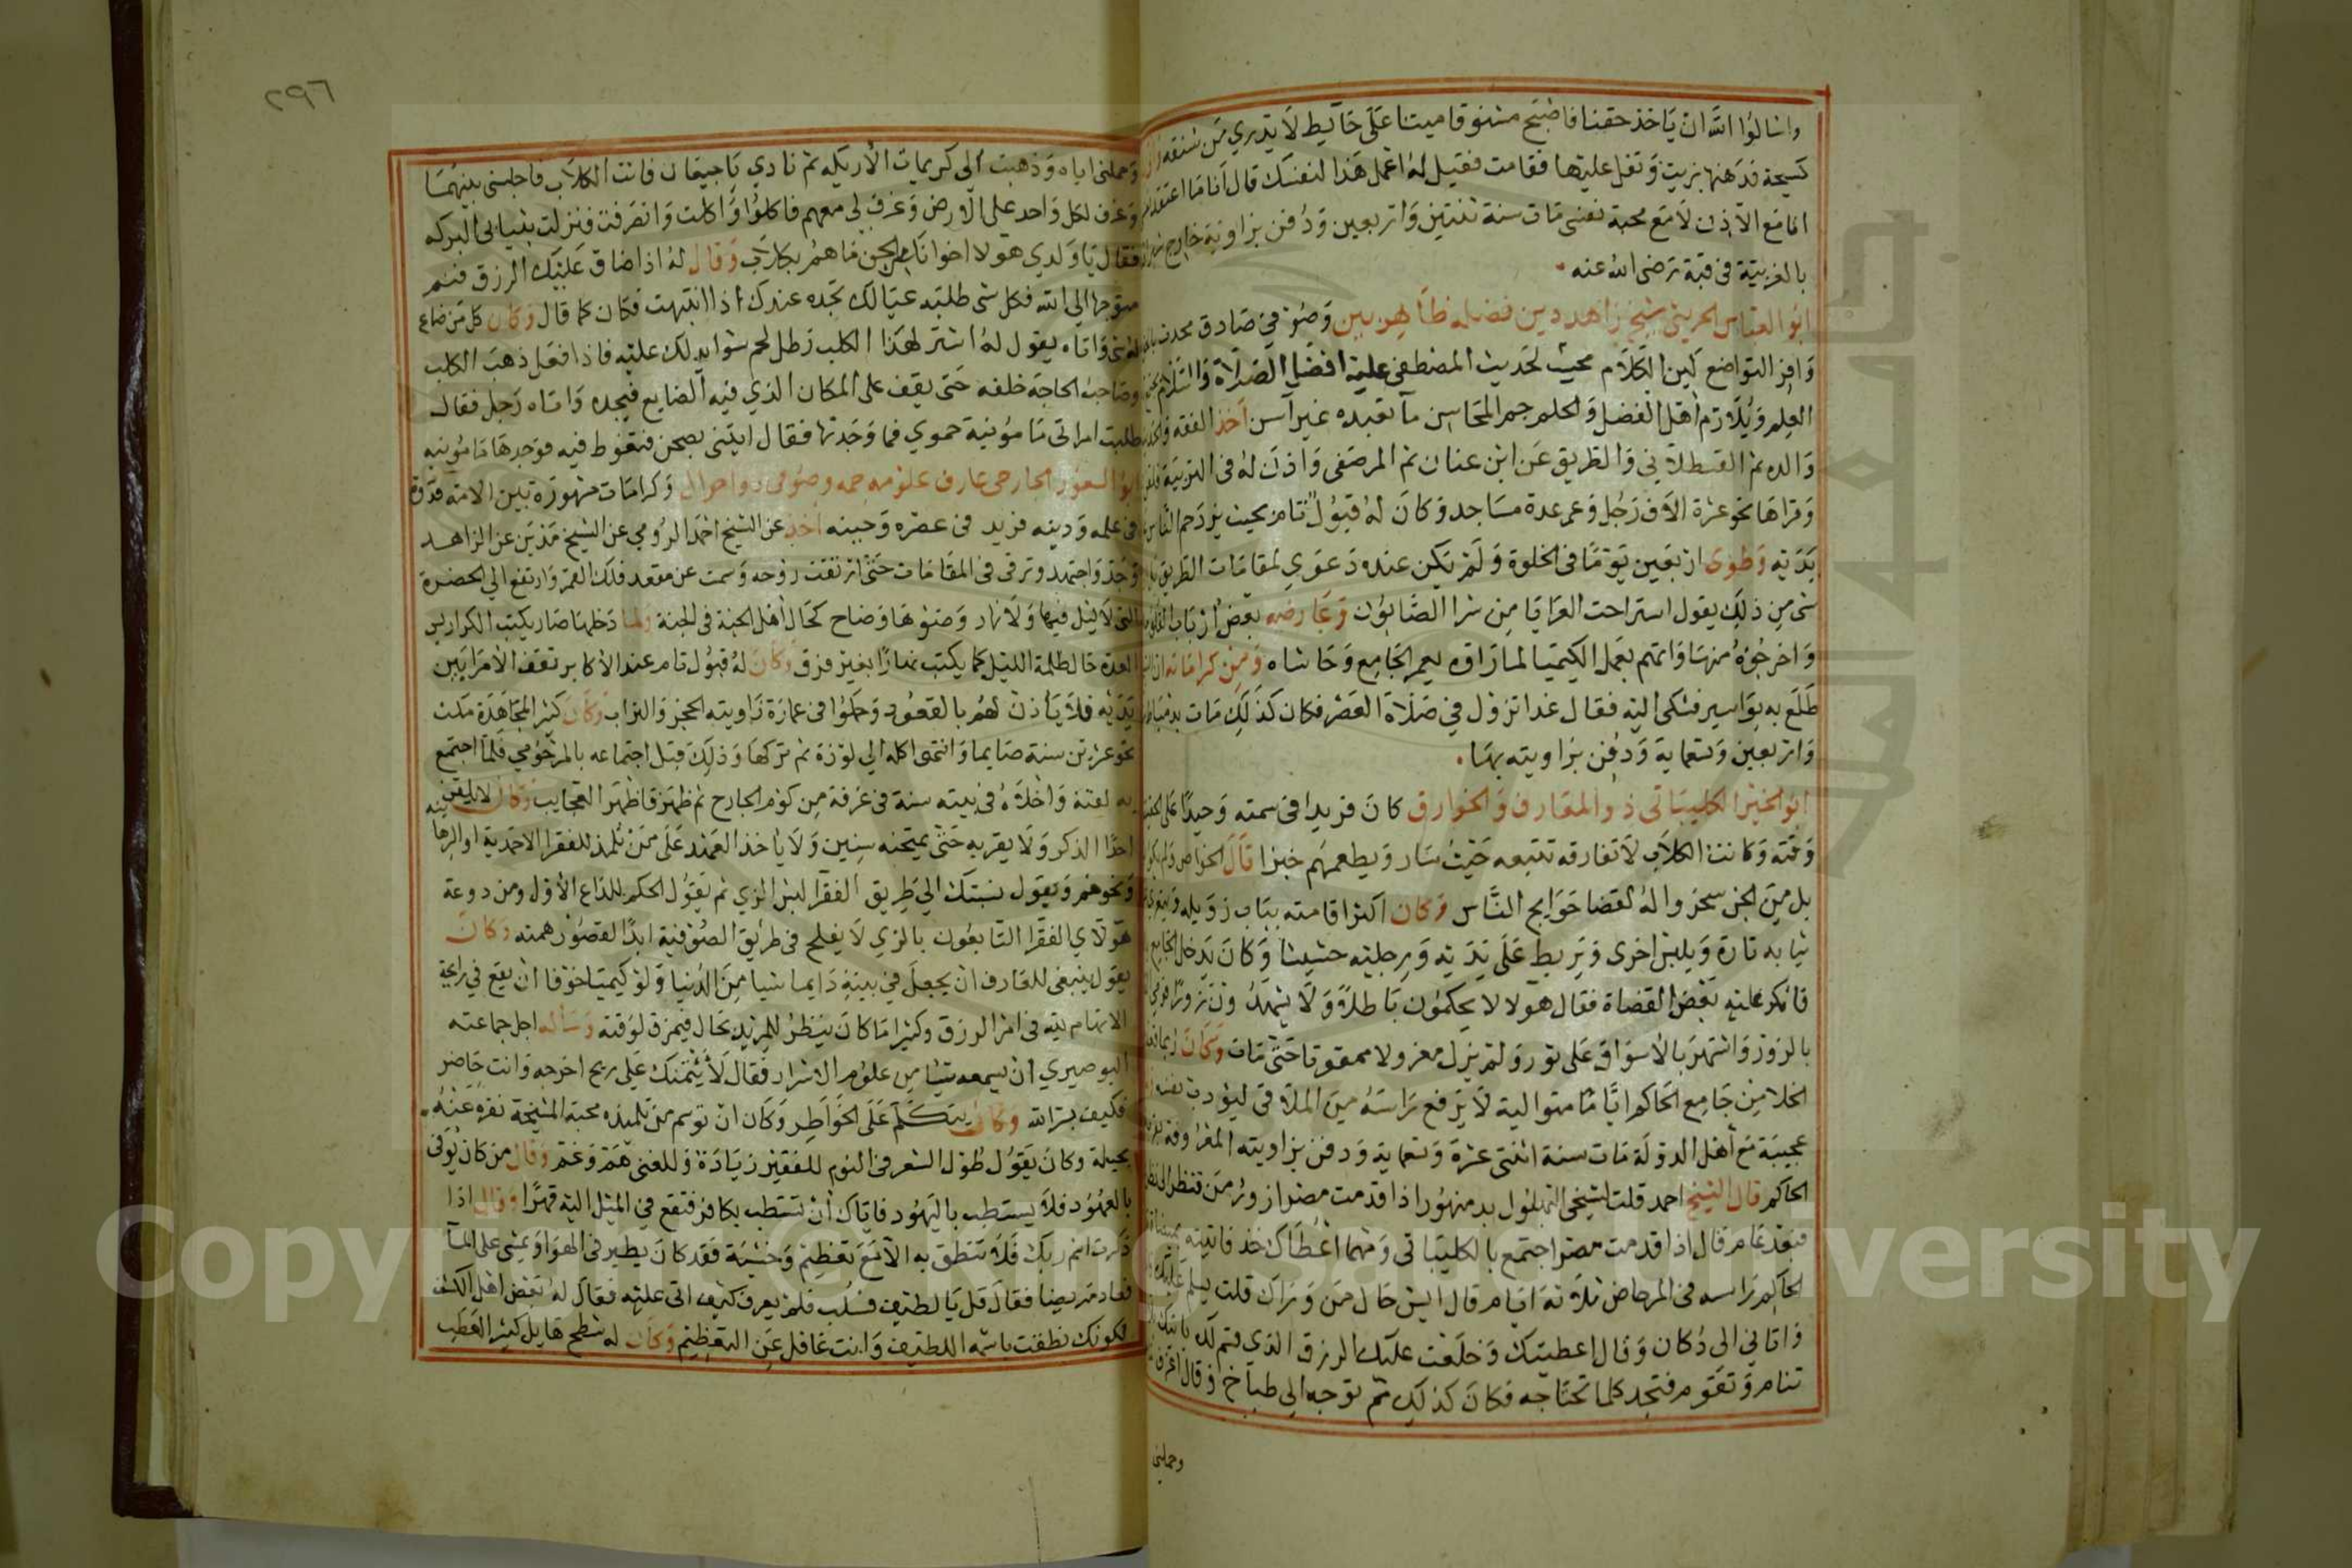 واسالوا الله ان ياخذ حقنا فاصبح مشنوقا ميتا على حايط لا يدري من شنقه
كسيحة فدهنها بزيت وتفل عليها فقامت فقيل له اعمل هذا لنفسك قال انا ما اعتقد
انا مع الاذن لا مع محبة نفسي مات سنة ثنتين واربعين ودفن بزاويته خارج
بالغربية في قبة رضي الله عنه
ابو العباس الحريثي شيخ زاهد دين فضله ظاهر بين وصوفي صادق
وافر التواضع لين الكلام محب لحديث المصطفى عليه افضل الصلاة والسلام
العلم ويلازم اهل الفضل والحلم جم المحاسن ما تعبده غير آسن اخذ الفقه
والده ثم القسطلاني والطريق عن ابن عنان ثم المرصفي واذن له في التربية
وقراها نحو عشرة الاف رجل وعمر عدة مساجد وكان له قبول تام بحيث يزدحم الناس
يديه وطوى اربعين يوما في الخلوة ولم تكن عنده دعوى لمقامات الطريق
شي من ذلك يقول استراحت العرايا من شرا الصابون وعارضه بعض ارباب
واخرجوه منها واتهم بعمل الكيميا لما راوه يعمر الجامع وحاشاه ومن كراماته
طلع به بواسير فشكى اليه فقال غدا تزول في صلاة العصر فكان كذلك مات بدمياط
واربعين وتسعماية ودفن بزاويته بها
ابو الخير الكليباتي ذو المعارف والخوارق كان فريدا في سمته وحيدا
وقته وكانت الكلاب لا تفارقه تتبعه حيث سار ويطعمهم خبزا قال الخواص
بل من الجن سخروا له لقضا حوايج الناس وكان اكثر اقامته بباب زويله
ثيابه تارة ويلبس اخرى ويربط على يديه ورجليه حشيشا وكان يدخل الجامع
فانكر عليه بعض القضاة فقال هولا لا يحكمون باطلا ولا يشهدون زورا
بالزور واشتهر بالاسواق على ثور ولم يزل معزولا ممقوتا حتى مات وكان
الخلا من جامع الحاكم اياما متوالية لا يرفع راسه من الملاقي ليؤدب نفسه
عجيبة مع اهل الدولة مات سنة اثنتي عشرة وتسعماية ودفن بزاويته المعروفة
الحاكم قال الشيخ احمد قلت لشيخي البهلول بدمنهور اذا قدمت مصر ازور من
فبعد عام قال اذا قدمت مصر اجتمع بالكليباتي ومهما اعطاك خذ فاتيته
الحاكم راسه في المرحاض ثلاثة ايام قال ايش حال من وراك قلت يسلم عليك
واتا بي الى دكان وقال اعطيتك وخلعت عليك الرزق الذي قسم لك
تنام وتقوم فتجد كلما تحتاجه فكان كذلك ثم توجه الى طباخ وقال اغرف
وحملني
٢٩٦
وحملني اياه وذهبت الى كريمات الاريكه ثم نادي يا جيعان فاتت الكلاب فاجلسني بينهما
وغرف لكل واحد على الارض وغرف لي معهم فاكلوا واكلت وانصرفت فنزلت بثيابي البركه
فقال يا ولدي هولا اخواننا من الجن ما هم بكلاب وقال له اذا ضاق عليك الرزق فنم
متوجها الى الله فكل شي طلبته عيالك تجده عندك اذا انتبهت فكان كما قال وكان كل من ضاع
له شي واتاه يقول له اشتر لهذا الكلب رطل لحم شوا يدلك عليه فاذا فعل ذهب الكلب
وصاحب الحاجة خلفه حتى يقف على المكان الذي فيه الضايع فيجده واتاه رجل فقال
طلبت امراتي مامونية حموي فما وجدتها فقال ايتني بصحن فتغوط فيه فوجدها مامونيه
ابو السعود الجارحي عارف علومه جمه وصوفي ذو احوال وكرامات مشهورة بين الامة
في علمه ودينه فريد في عصره وحينه اخذ عن الشيخ احمد الرومي عن الشيخ مدين عن الزاهد
وجد واجتهد وترقى في المقامات حتى ارتقت روحه وسمت عن مقعد فلك القمر وارتفع الى الحضرة
التي لا ليل فيها ولا نهار وضوها وضاح كحال اهل الجنة في الجنة ولما دخلها صار يكتب الكراريس
العدة حال ظلمة الليل كما يكتب نهارا بغير فرق وكان له قبول تام عند الاكابر تقف الامرا بين
يديه فلا ياذن لهم بالقعود وحملوا في عمارة زاويته الحجر والتراب وكان كثير المجاهدة مكث
نحو عشرين سنة صايما وانتهى اكله الى لوزة ثم تركها وذلك قبل اجتماعه بالمرحومي فلما اجتمع
به لقنه واخلاه في بيته سنة في غرفة من كوم الجارح ثم ظهر فاظهر العجايب وكان لا يلقن
احدا الذكر ولا يقربه حتى يمتحنه سنين ولا ياخذ العهد على من تلمذ للفقرا الاحمدية او
ونحوهم ويقول نسبتك الى طريق الفقرا لبس الزي ثم يقول الحكم للداع الاول ومن دوعة
هولاي الفقرا التابعون بالزي لا يفلح في طريق الصوفية ابدا لقصور همته وكان
يقول ينبغي للعارف ان يجعل في بيته دايما شيا من الدنيا ولو كيميا خوفا ان يقع في رايحة
الاتهام لله في امر الرزق وكثيرا ما كان ينظر للمريد بحال فيمزق لوقته وساله اجل جماعته
البوصيري ان يسمعه شيا من علوم الاسرار فقال لا يئتمنك على ريح اخرجه وانت حاضر
فكيف بسر الله وكان يتكلم على الخواطر وكان ان توسم من تلميذه محبة المشيخة نفره عنه
بحيلة وكان يقول طول الشعر في النوم للفقير زيادة وللغني هم وغم وقال من كان يوفي
بالعهود فلا يستطب باليهود فاياك ان تستطب بكافر فتقع في الميل اليه قهرا وقال اذا
ذكرت اسم ربك فلا تنطق به الا مع تعظيم وخشية فقد كان يطير في الهوا ويمشي على الما
فعاد مريضا فقال قل يا لطيف فسلب فلم يعرف كيف اتى عليه فقال له بعض اهل الكشف
لكونك نطقت باسمه اللطيف وانت غافل عن التعظيم وكان له شطح هايل كثير
Copyright © King Saud University